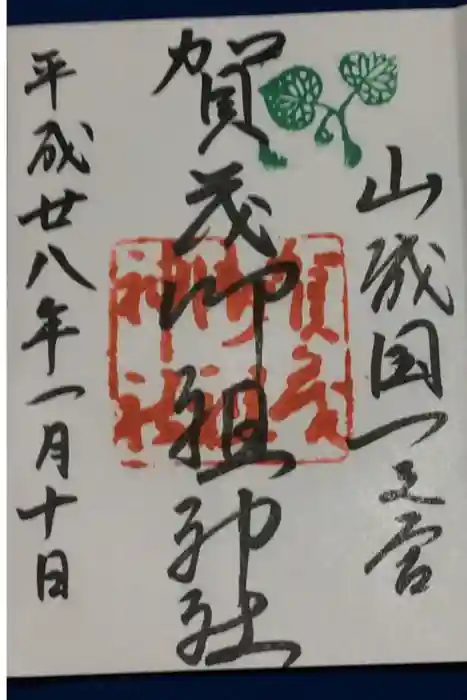 山城国一之宮
賀茂御祖神社
賀茂御祖神社
平成廿八年一月十日